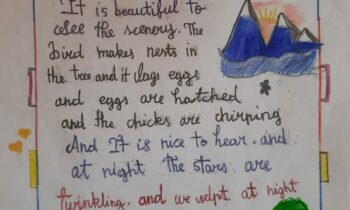 It is beautiful to
see the scenery. The
bird makes nests in
the tree and it lags eggs
and eggs are hatched
and the chicks are chirping
And It is nice to hear. and
at night the stars are
twinkling. and we slept at night